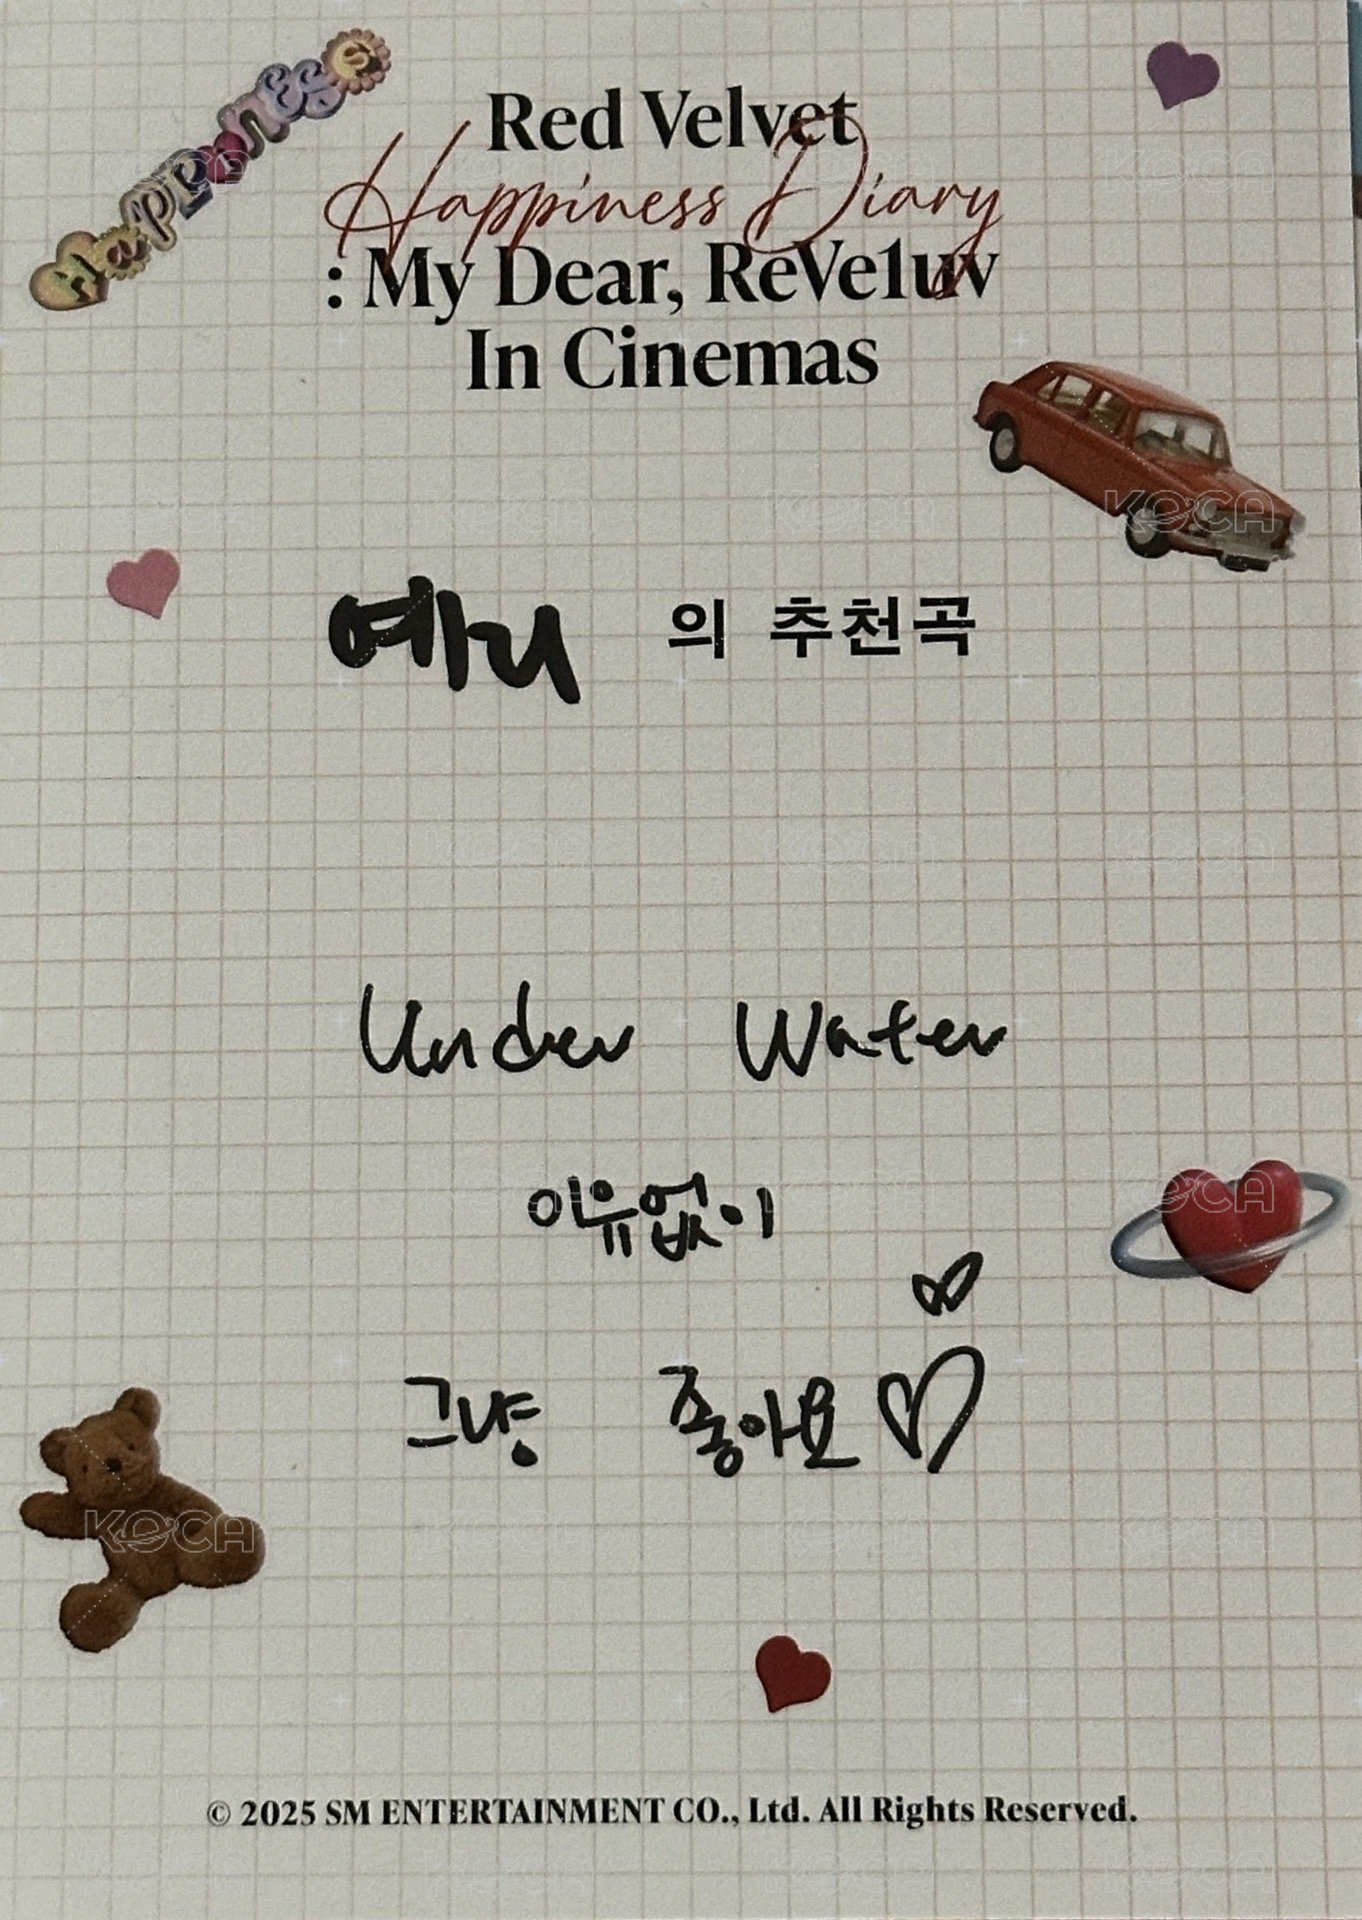 Happiness
Red Velvet
Happiness Diary
: My Dear, ReVe1uv
In Cinemas
예리 의 추천곡
Under Water
이유없이
그냥 좋아요
© 2025 SM ENTERTAINMENT CO., Ltd. All Rights Reserved.
KOCA